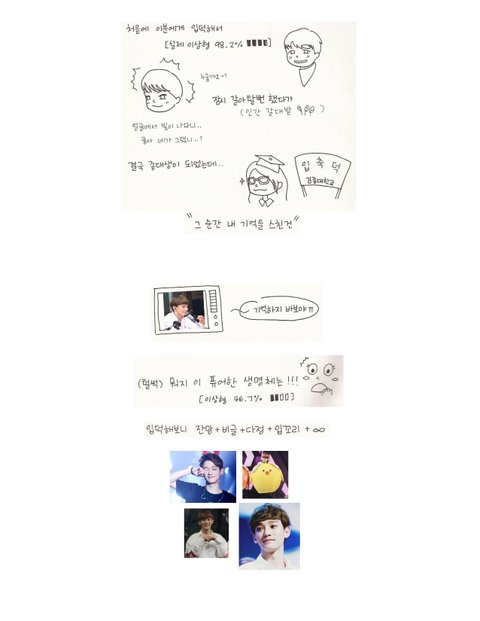 처음에 이분에게 입덕해서
[실제 이상형 98.2%]
누굴까요~?
잠시 갈아탈뻔 했다가
(인간 갈대밭)
얼굴에서 빛이 나다니..
좋아 네가 그랬니..?
결국 종대생이 되었는데..
입 축 덕
검종대학교
"그 순간 내 기억을 스친건"
기억하지 바보야ㅠ
(털썩) 뭐지 이 퓨어한 생명체는!!!
[이상형 46.7%]
입덕해보니 잔망+비글+다정+입꼬리+∞